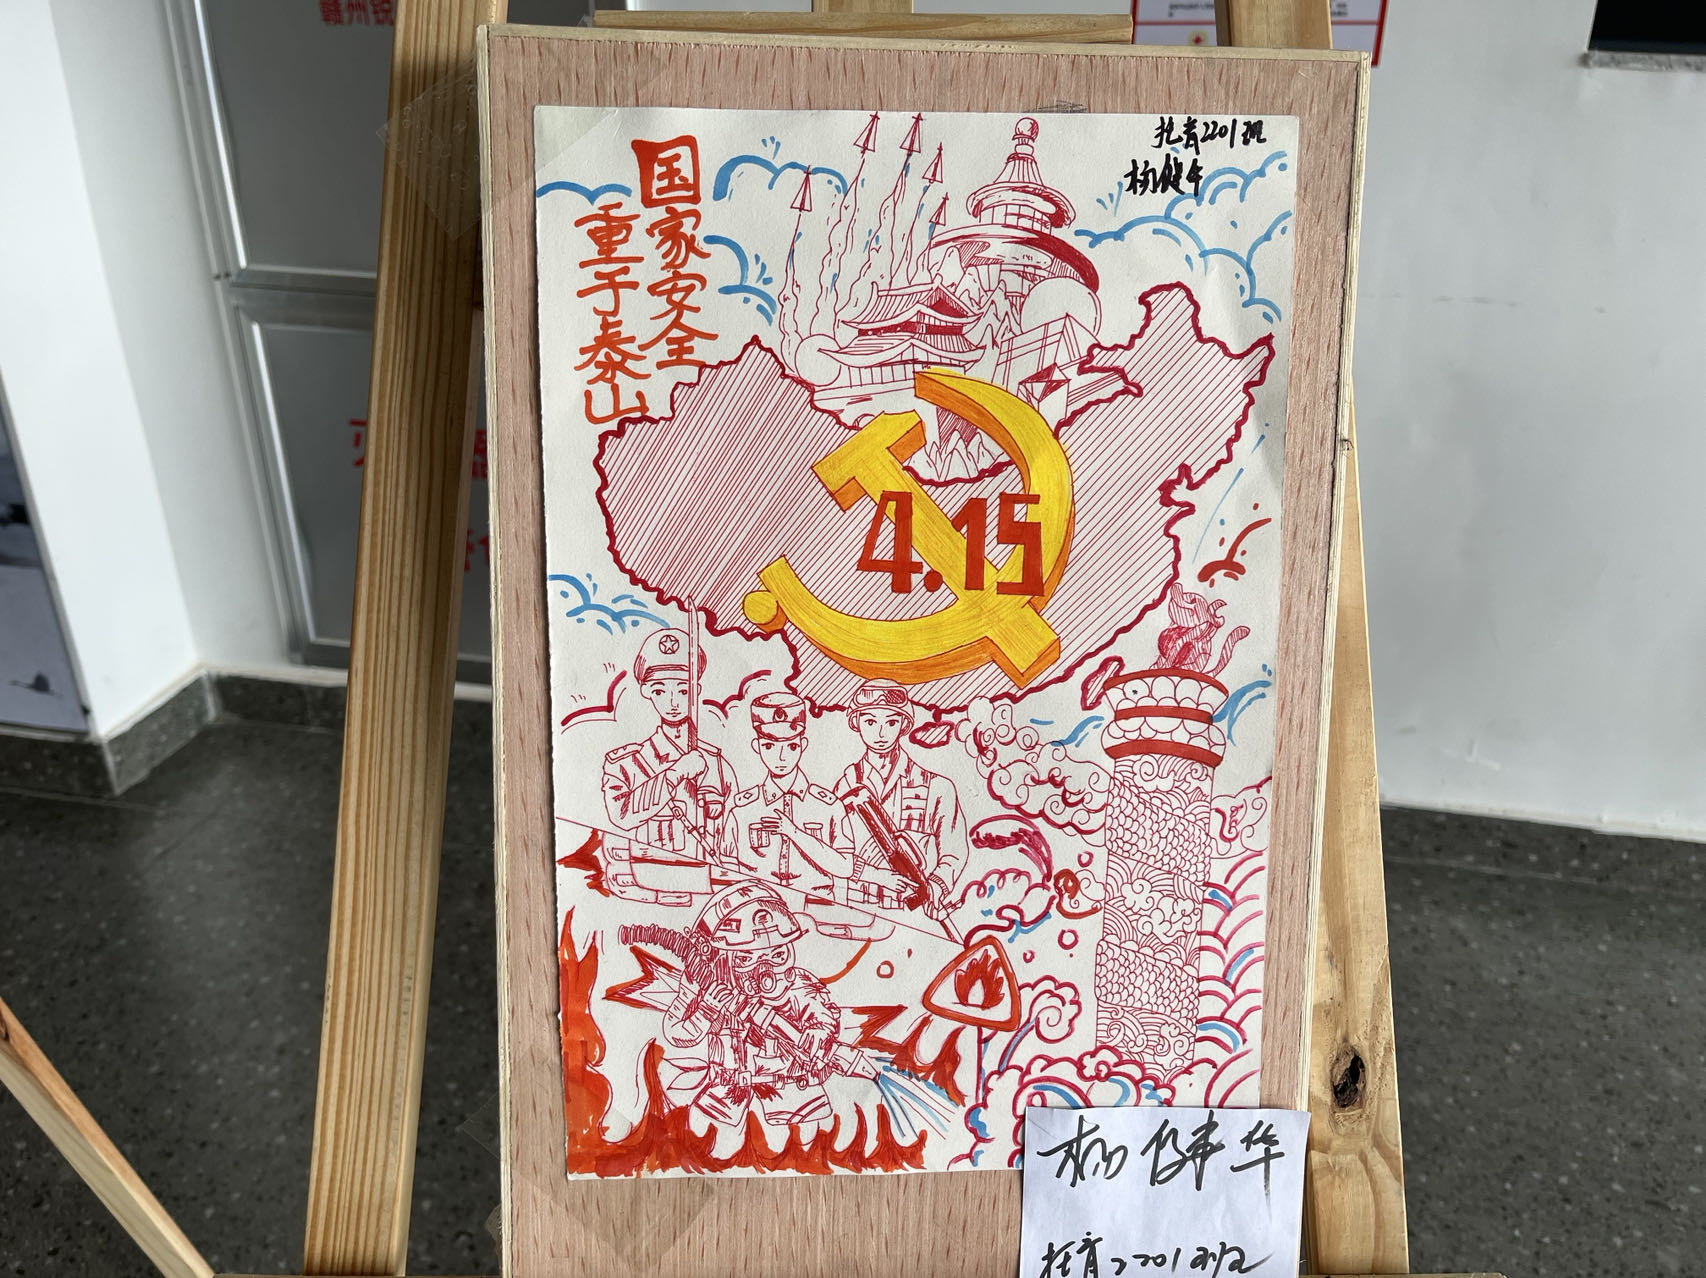 国家安全
重于泰山
托育2201班
杨健华
4.15
杨健华
托育2201班
赣州锐